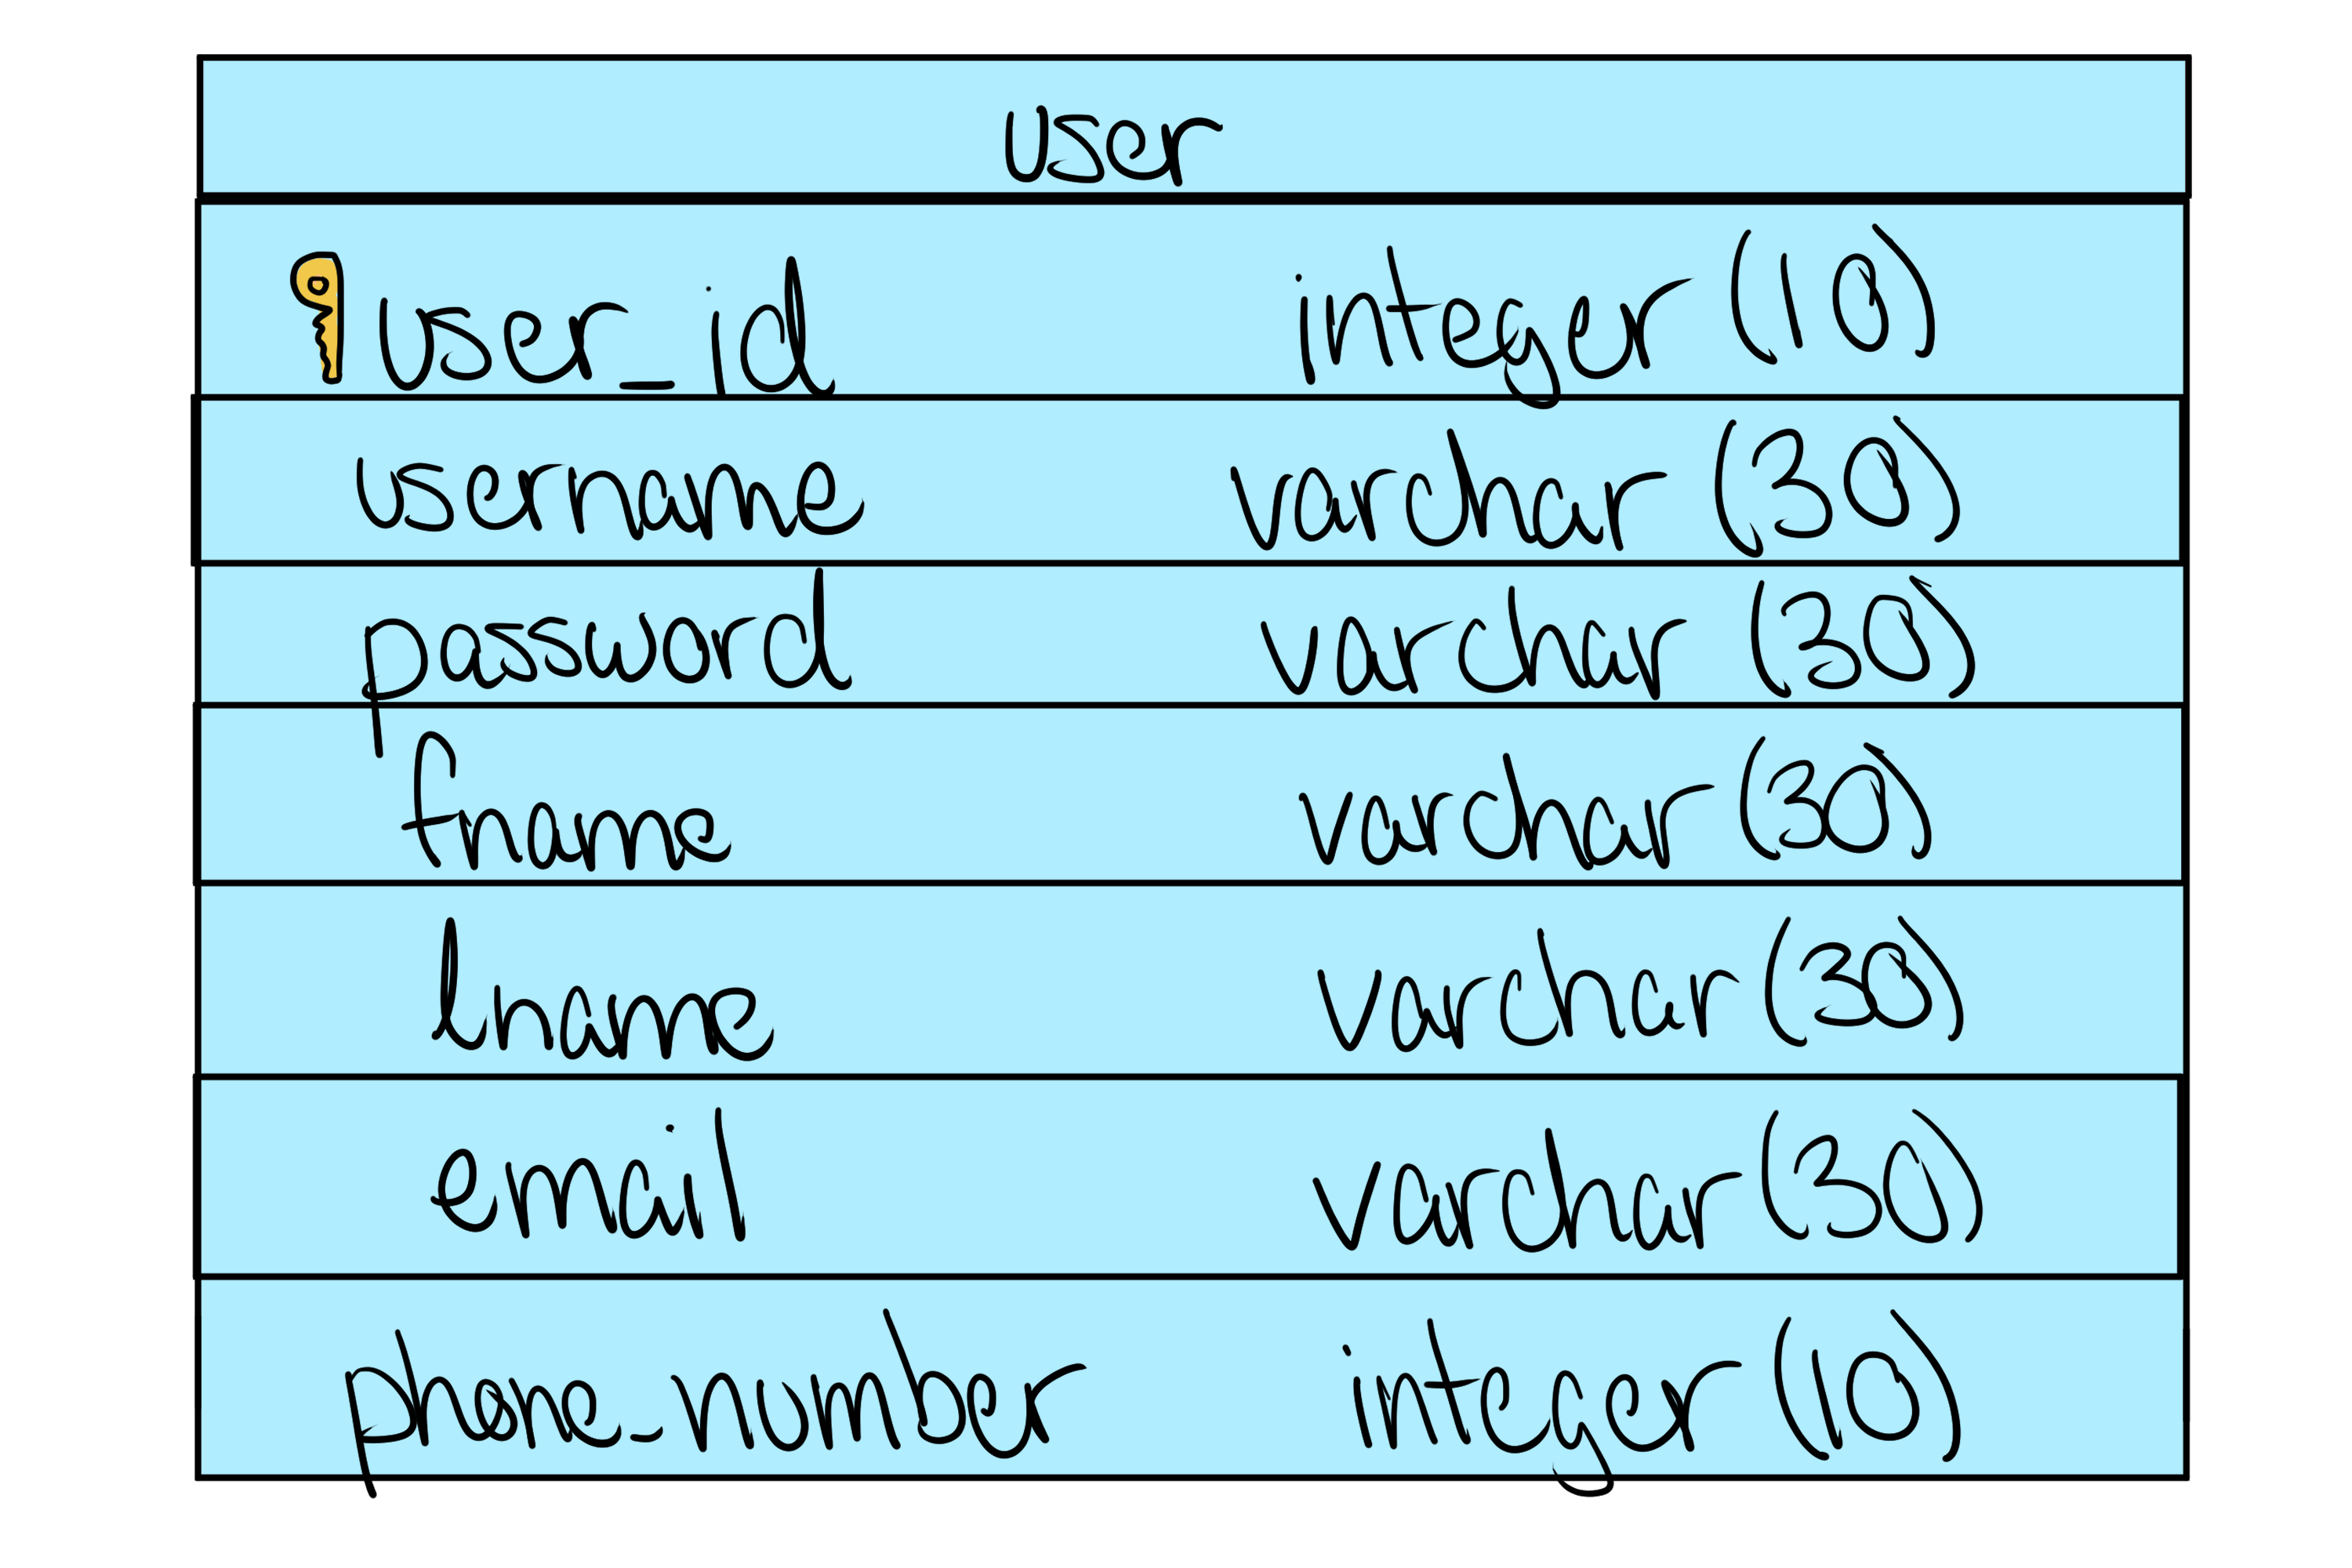 user
user_id integer (10)
username varchar (30)
password varchar (30)
fname varchar (30)
lname varchar (30)
email varchar (30)
phone_number integer (10)